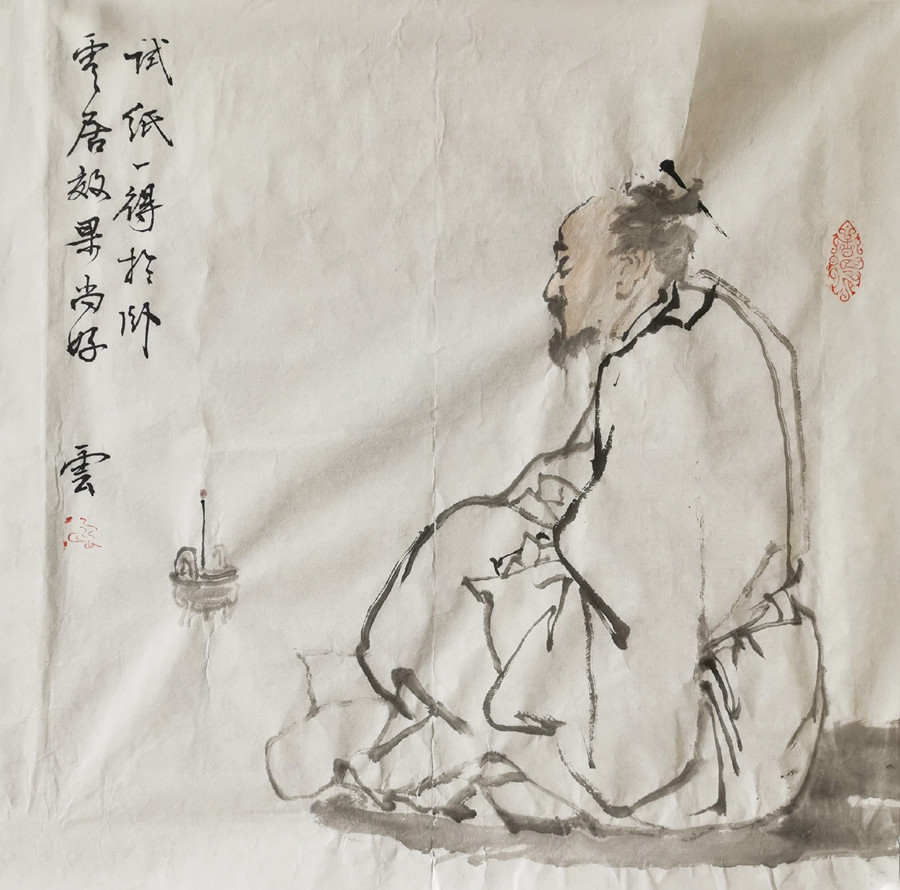 试纸一得於卧
云居效果尚好
雲